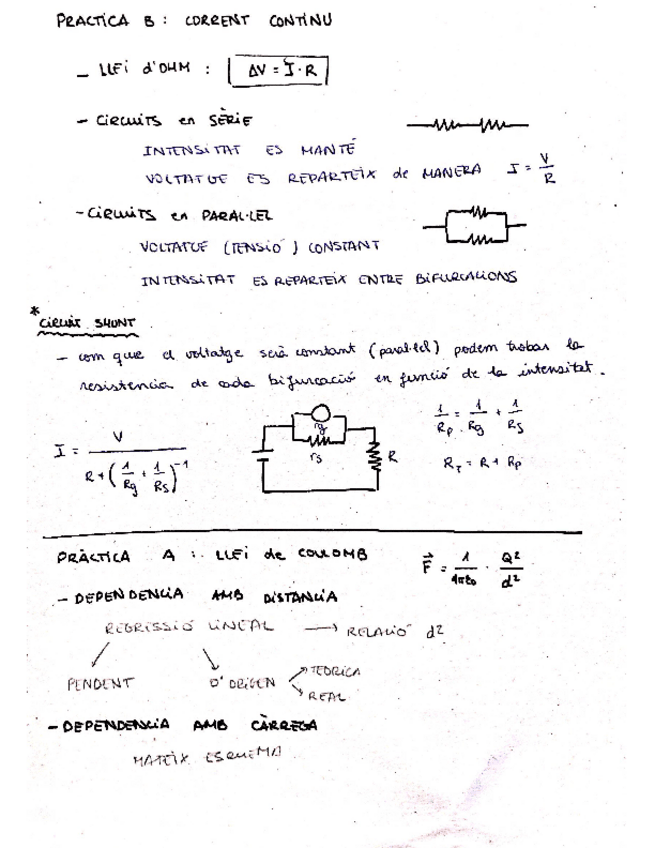 PRACTICA B : CORRENT CONTINU
- LLEi d'OHM : ΔV = I · R
- CiRCUiTS en SÈRiE
INTENSiTAT ES MANTÉ
VOLTATGE ES REPARTEiX de MANERA I = V/R
- CiRCUiTS en PARAL·LEL
VOLTATGE (TENSIÓ) CONSTANT
INTENSiTAT ES REPARTEiX ENTRE BIFURCACIONS
*
CiRCUiT SHUNT
- com que el voltatge serà constant (paral·lel) podem trobar la
resistència de cada bifurcació en funció de la intensitat.
I = V / (R + (1/Rg + 1/Rs)^-1)
rg
rs
R
1/Rp = 1/Rg + 1/Rs
RT = R + Rp
PRÀCTICA A : LLEi de COULOMB F⃗ = 1/4πε0 · Q²/d²
- DEPENDENCiA AMB DiSTÀNCiA
REGRESSIÓ LiNEAL → RELACIÓ d²
PENDENT D'ORiGEN TEÒRICA
REAL
- DEPENDENCiA AMB CÀRREGA
MATEiX ESQUEMA